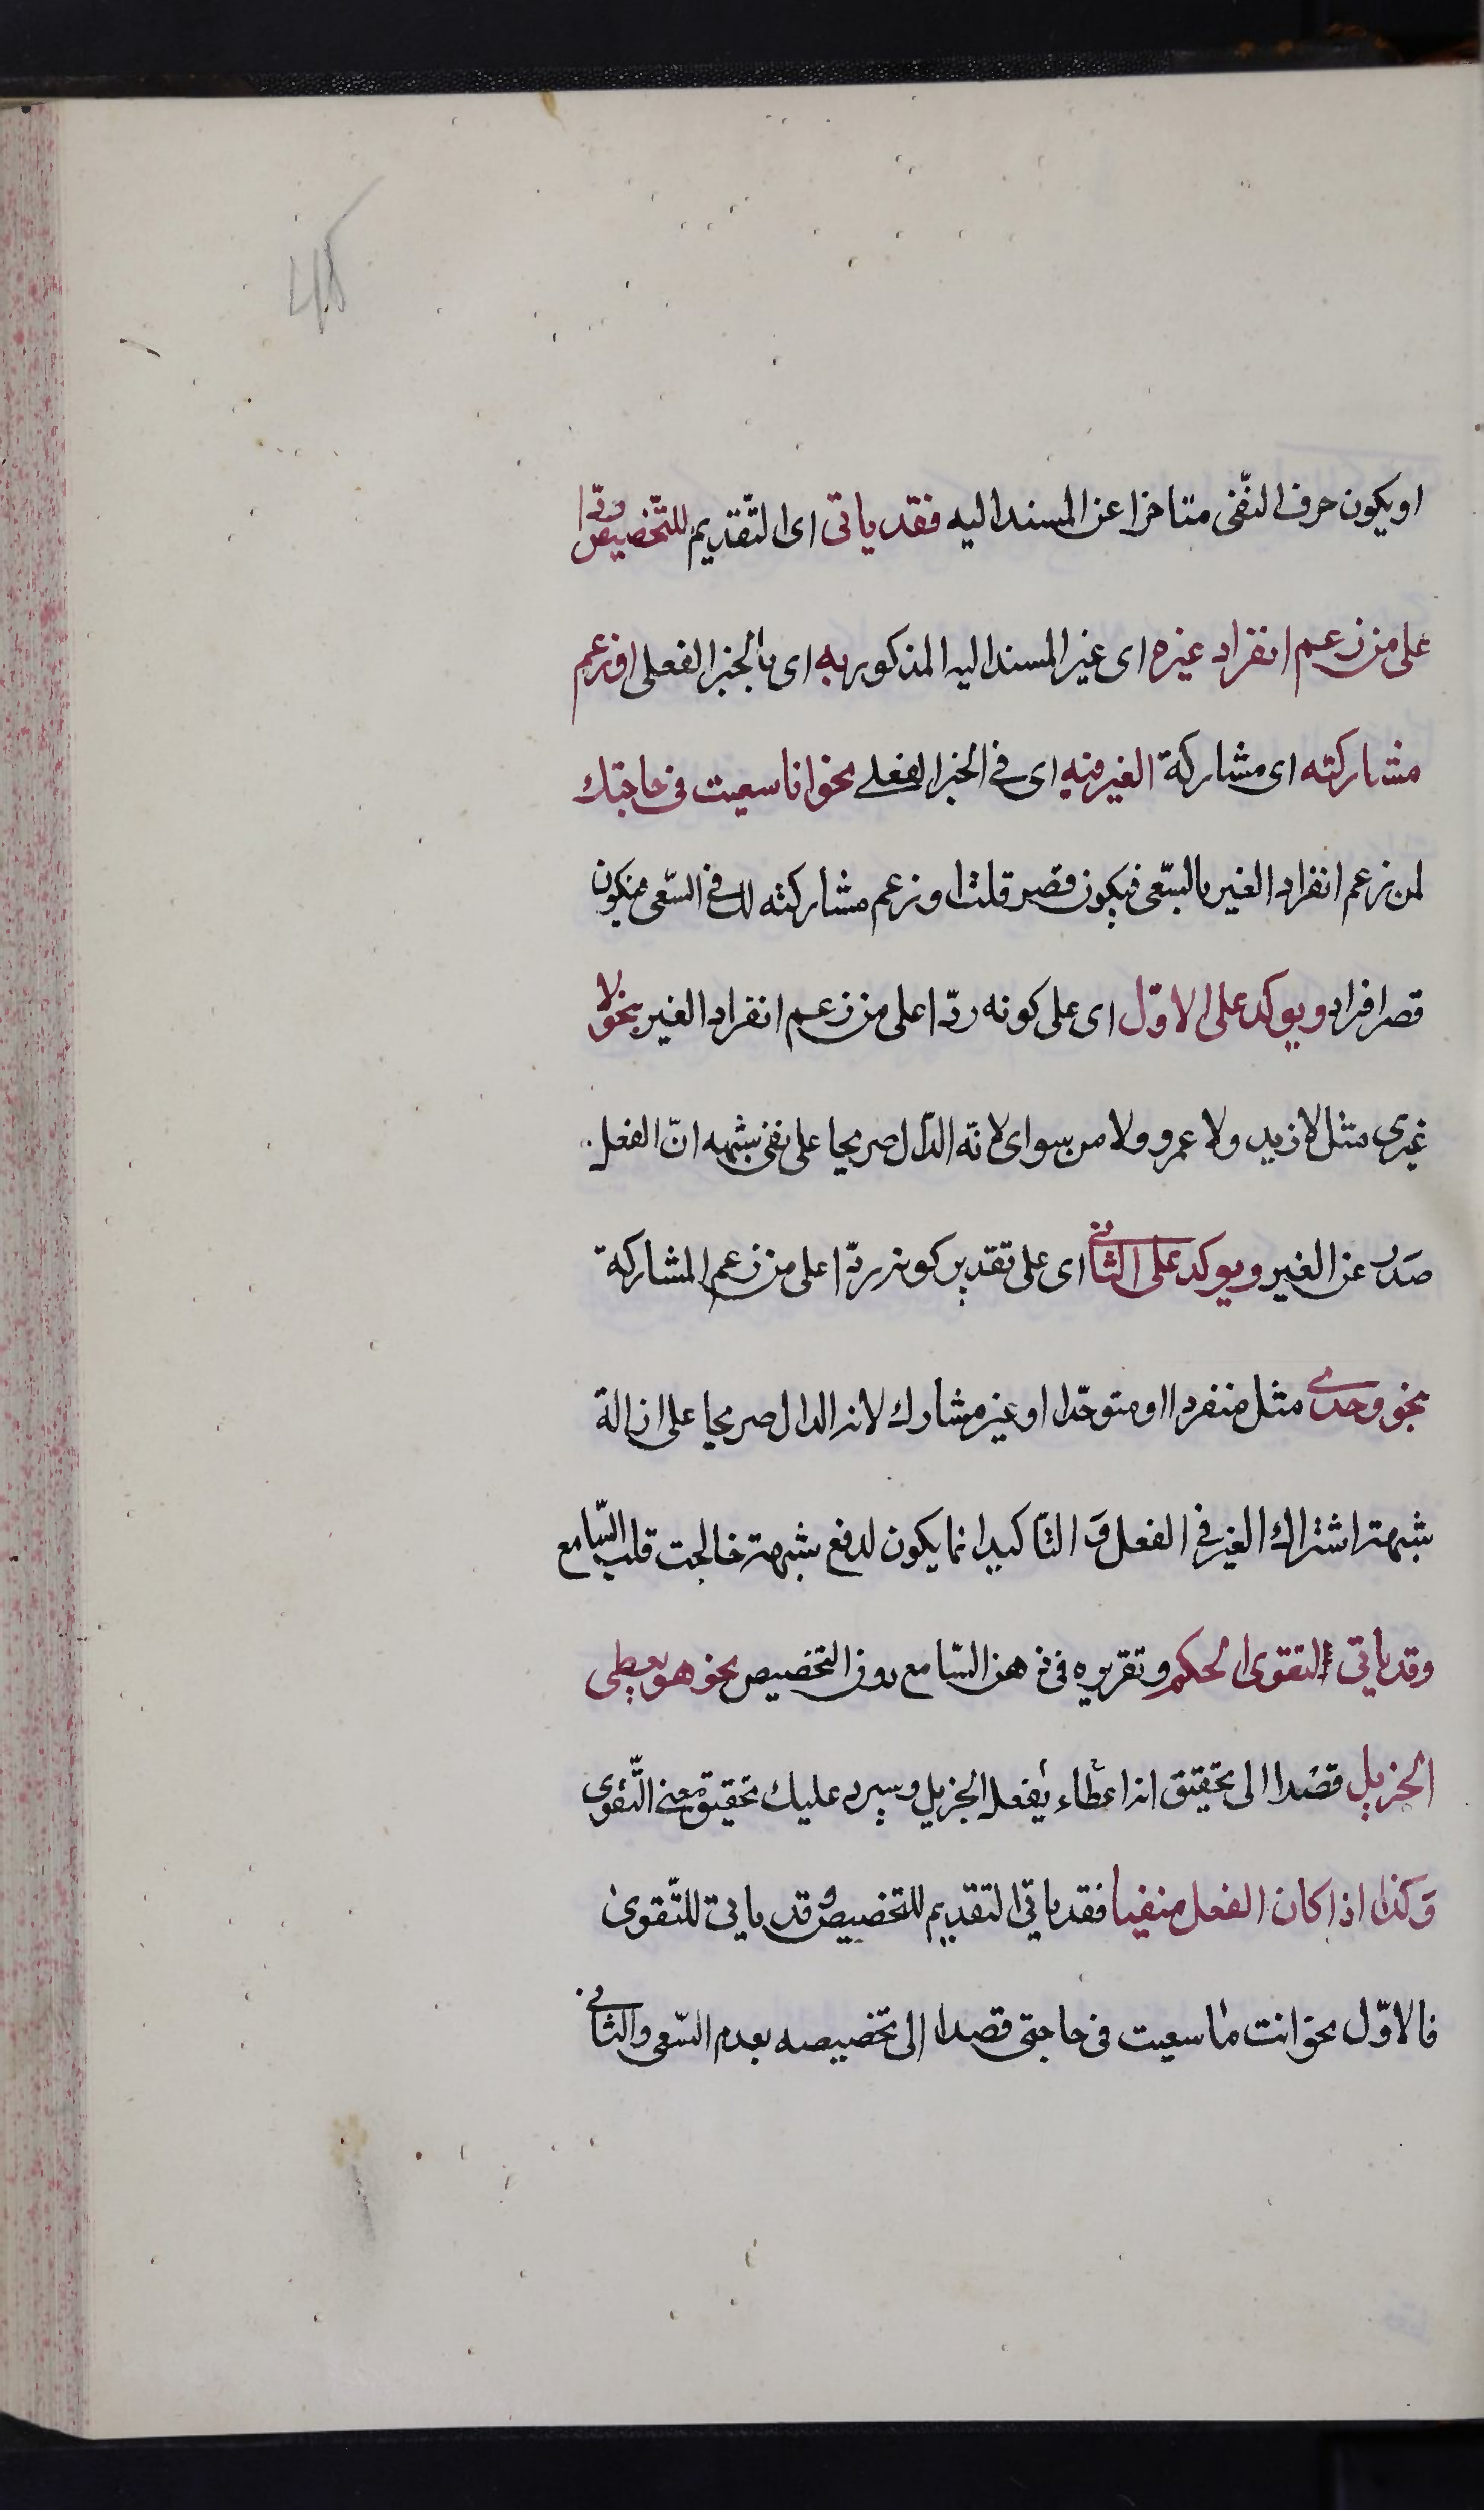 او يكون حرف النّفى متاخرا عن المسند اليه فقد ياتى اى التّقديم للتّخصيص ردّا
على من زعم انفراد غيره اى غير المسند اليه المذكور به اى بالخبر الفعلى او زعم
مشاركته اى مشاركة الغير فيه اى فى الخبر الفعلى نحو انا سعيت فى حاجتك
لمن زعم انفراد الغير بالسّعى فيكون قصر قلت او زعم مشاركته لك فى السّعى فيكون
قصر افراد ويوكد على الاوّل اى على كونه ردّا على من زعم انفراد الغير بنحو لا
غيرى مثل لا زيد ولا عمرو ولا من سواى لانّه الدّال صريحا على نفى شبهه انّ الفعل
صدر عن الغير ويوكد على الثانى اى على تقدير كونه ردّا على من زعم المشاركة
بنحو وحدى مثل منفردا او متوحّدا او غير مشارك لانه الدال صريحا على ازالة
شبهة اشتراك الغير فى الفعل وَ التّاكيد انما يكون لدفع شبهة خالجت قلب السّامع
وقد ياتى لتقوى الحكم وتقريره فى ذهن السّامع دون التخصيص نحو هو يعطى
الجزيل قصدا الى تحقيق انه اعطاء يفعل الجزيل وسيرد عليك تحقيق معنى التّقوى
وَكذا اذا كان الفعل منفيا فقد ياتى التقديم للتخصيص و قد ياتى للتّقوى
فالاوّل نحو انت ما سعيت فى حاجتى قصدا الى تخصيصه بعدم السّعى والثانى